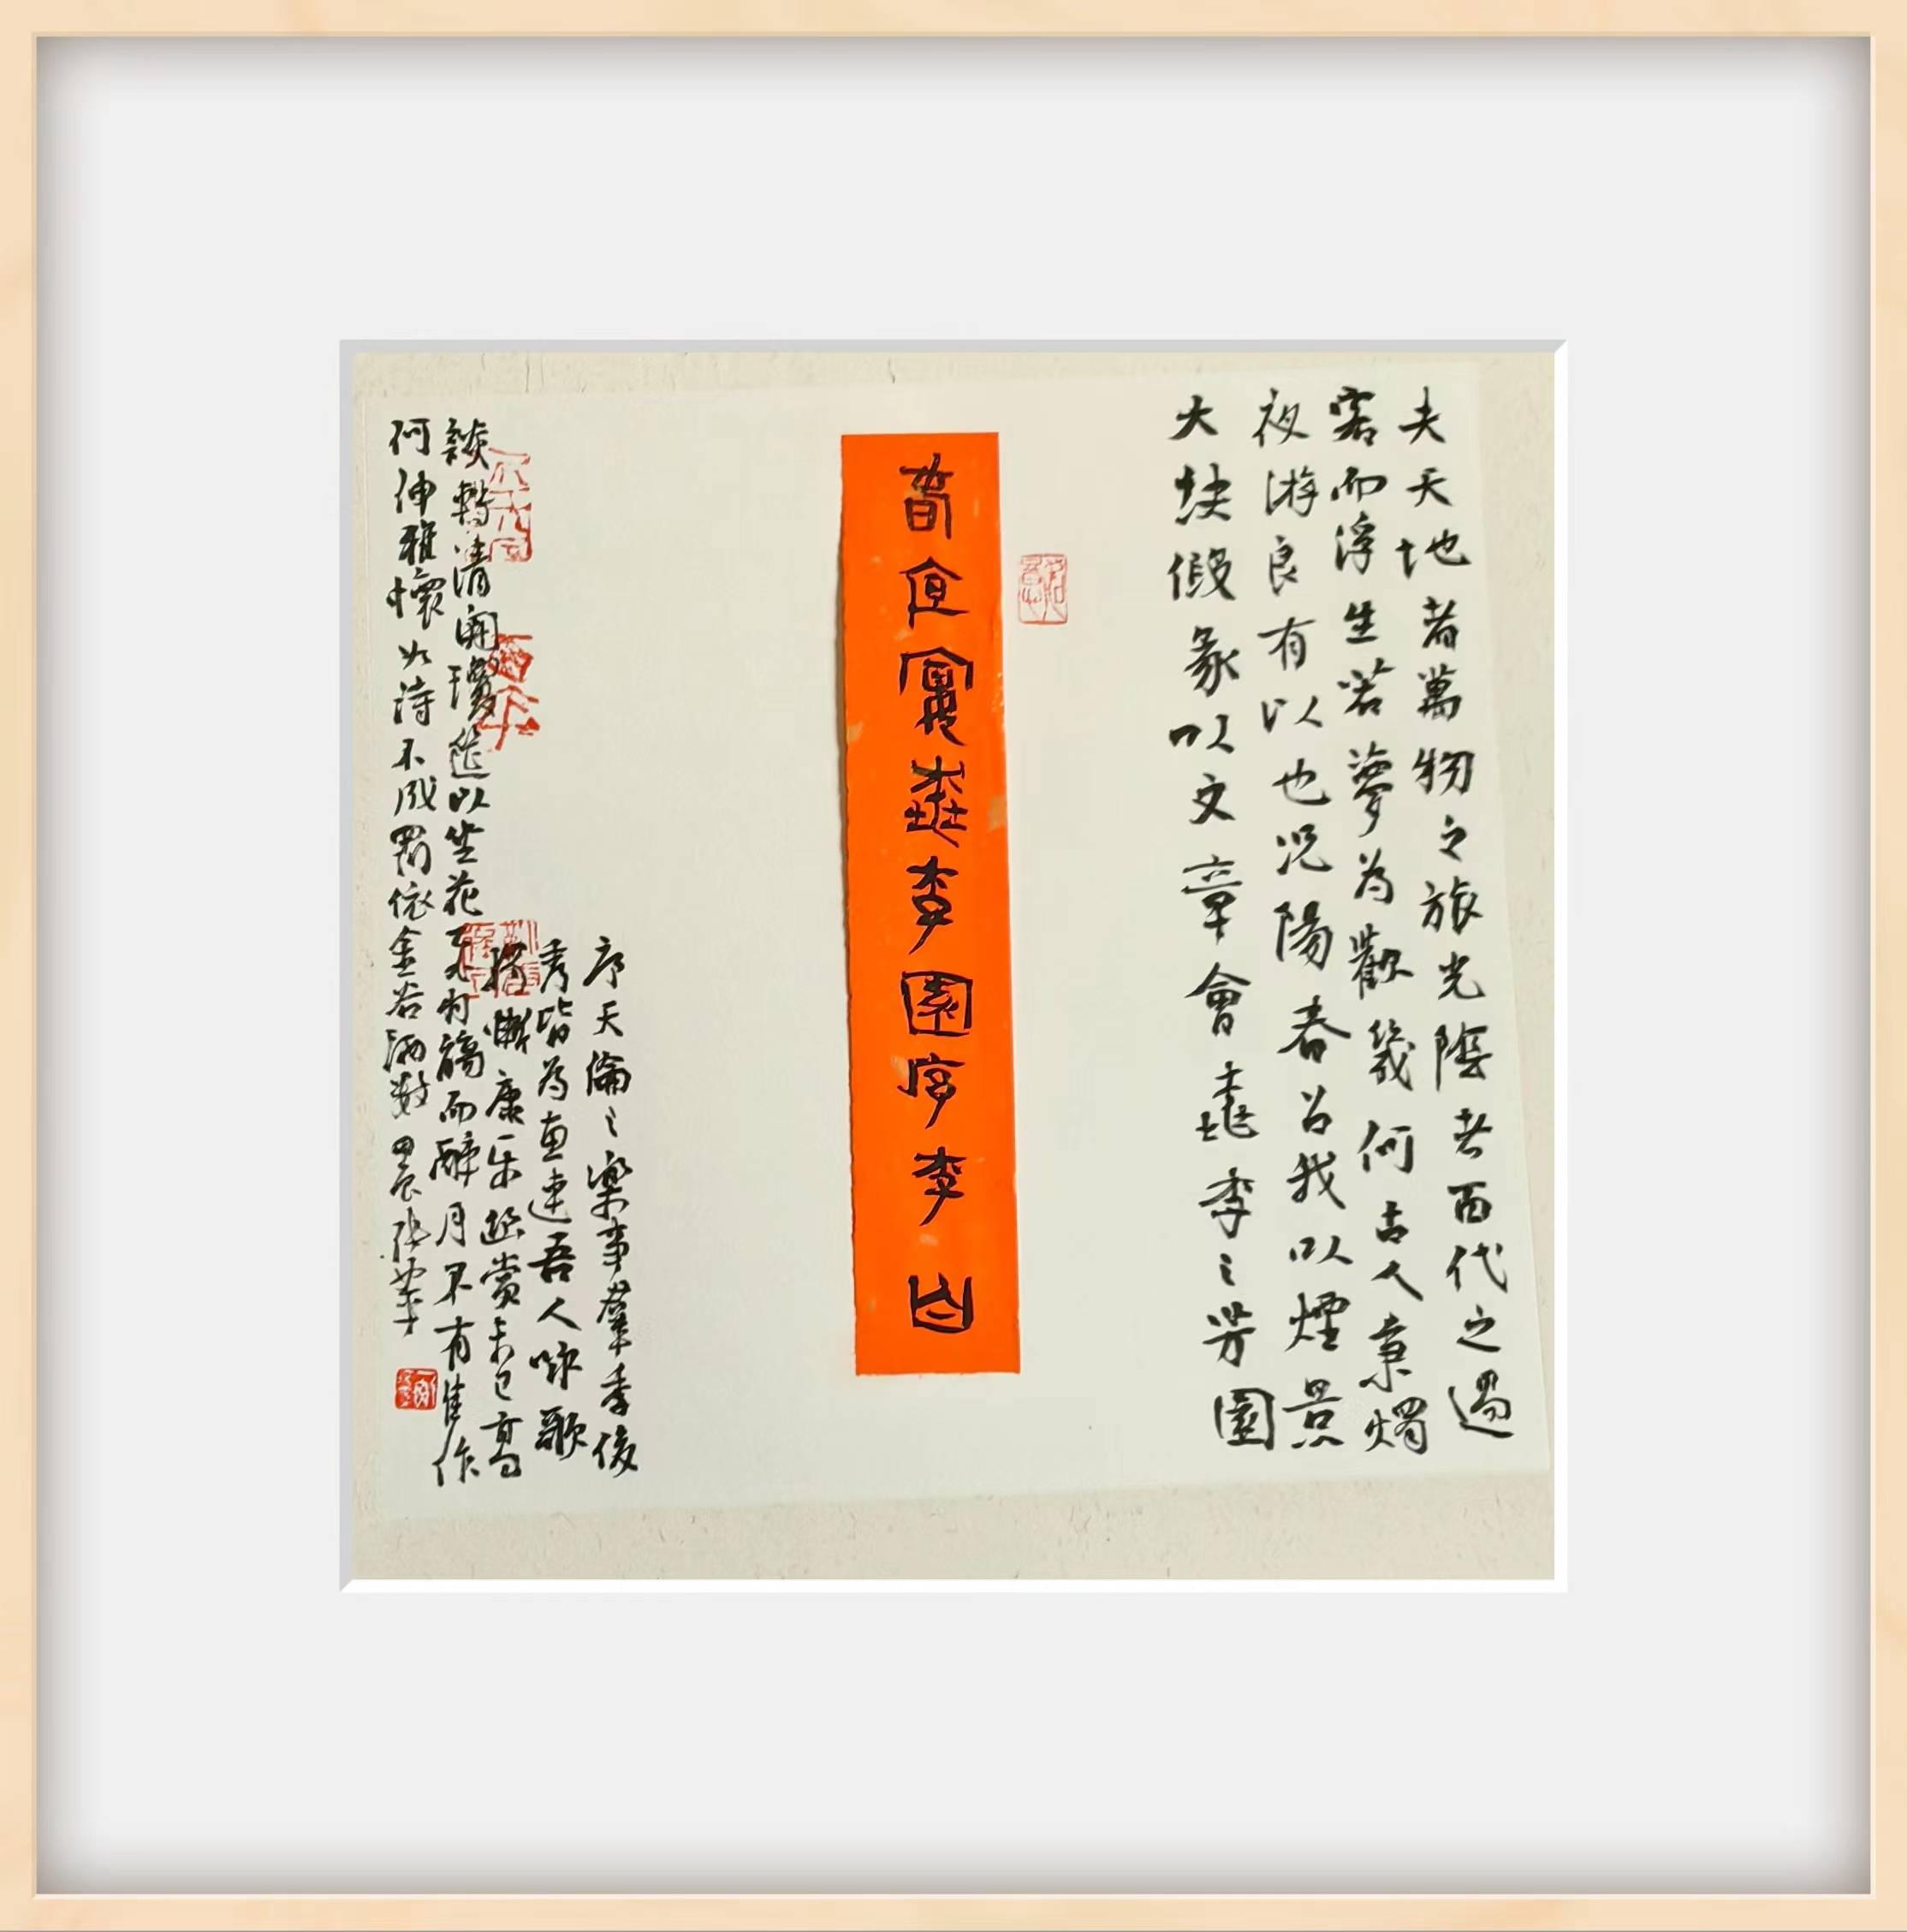 夫天地者萬物之旅光陰者百代之過
客而浮生若夢為歡幾何古人秉燭
夜游良有以也况陽春召我以煙景
大塊假我以文章會桃李之芳園
春夜宴桃李園序李白
序天倫之樂事羣季俊
秀皆為惠連吾人咏歌
獨慚康乐幽赏未已高
談轉清開瓊筵以坐花
飛羽觴而醉月不有佳作
何伸雅懷如詩不成罰依金谷酒数